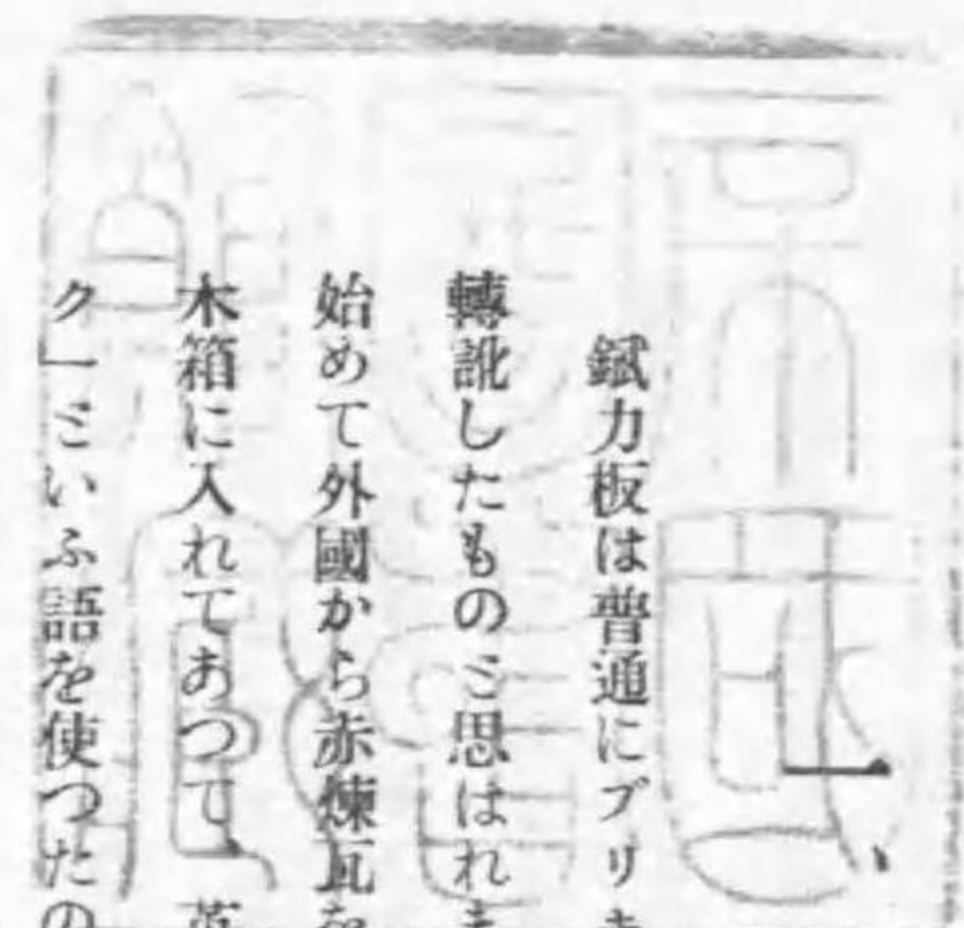 一、
錻力板は普通にブリキ
轉訛したものミ思はれま
始めて外國から赤煉瓦を
木箱に入れてあつて
ク」ミいふ語を使つたの